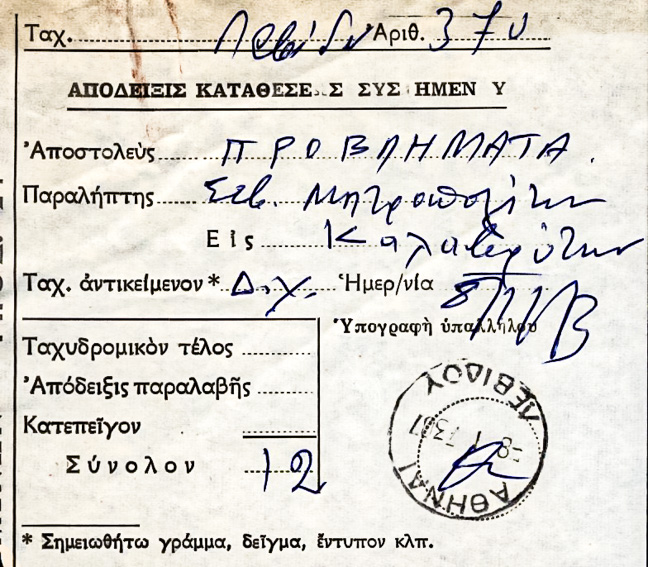 Ταχ. Λεβίδι Ἀριθ. 370
ΑΠΟΔΕΙΞΙΣ ΚΑΤΑΘΕΣΕ Σ ΣΥΣ ΗΜΕΝ Υ
Ἀποστολεὺς ΠΡΟΒΛΗΜΑΤΑ.
Παραλήπτης Σεβ. Μητροπολίτην
Εἰς
Ταχ. ἀντικείμενον * Δ.χ. Ἡμερ/νία 8/1/73
Ὑπογραφὴ ὑπαλλήλου
Ταχυδρομικὸν τέλος
Ἀπόδειξις παραλαβῆς
Κατεπεῖγον
Σύνολον 12
ΛΕΒΙΔΟΥ
ΑΘΗΝΑΙ
* Σημειωθήτω γράμμα, δεῖγμα, ἔντυπον κλπ.